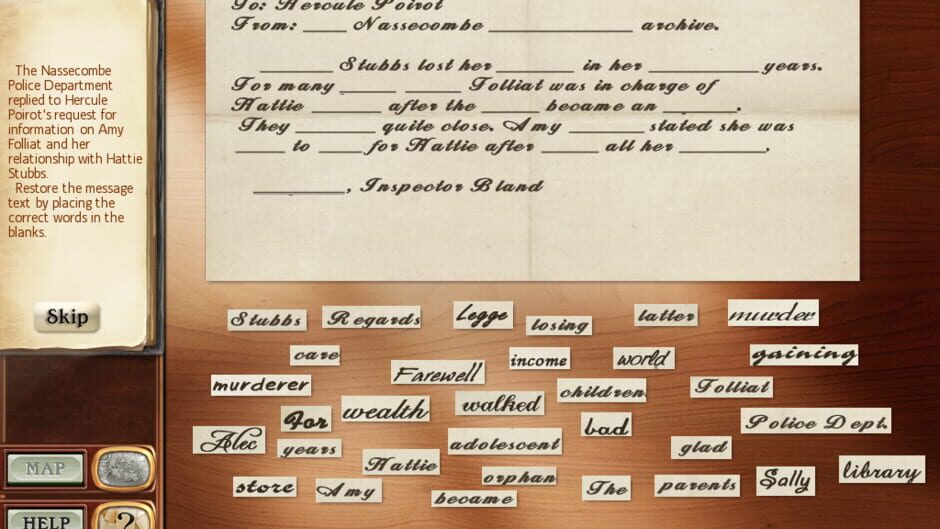 To: Hercule Poirot
From: ____ Nassecombe ____________ archive.
______ Stubbs lost her _______ in her __________ years.
For many _____ _____ Folliat was in charge of
Hattie _______ after the _____ became an ______.
They _______ quite close. Amy _______ stated she was
____ to ____ for Hattie after _____ all her ________.
________, Inspector Bland
The Nassecombe
Police Department
replied to Hercule
Poirot's request for
information on Amy
Folliat and her
relationship with Hattie
Stubbs.
Restore the message
text by placing the
correct words in the
blanks.
Skip
Stubbs Regards Legge losing latter murder
care income world gaining
murderer Farewell children. Folliat
For wealth walked bad Police Dept.
Alec years adolescent glad
Hattie orphan library
store Amy became The parents Sally
MAP
HELP ?